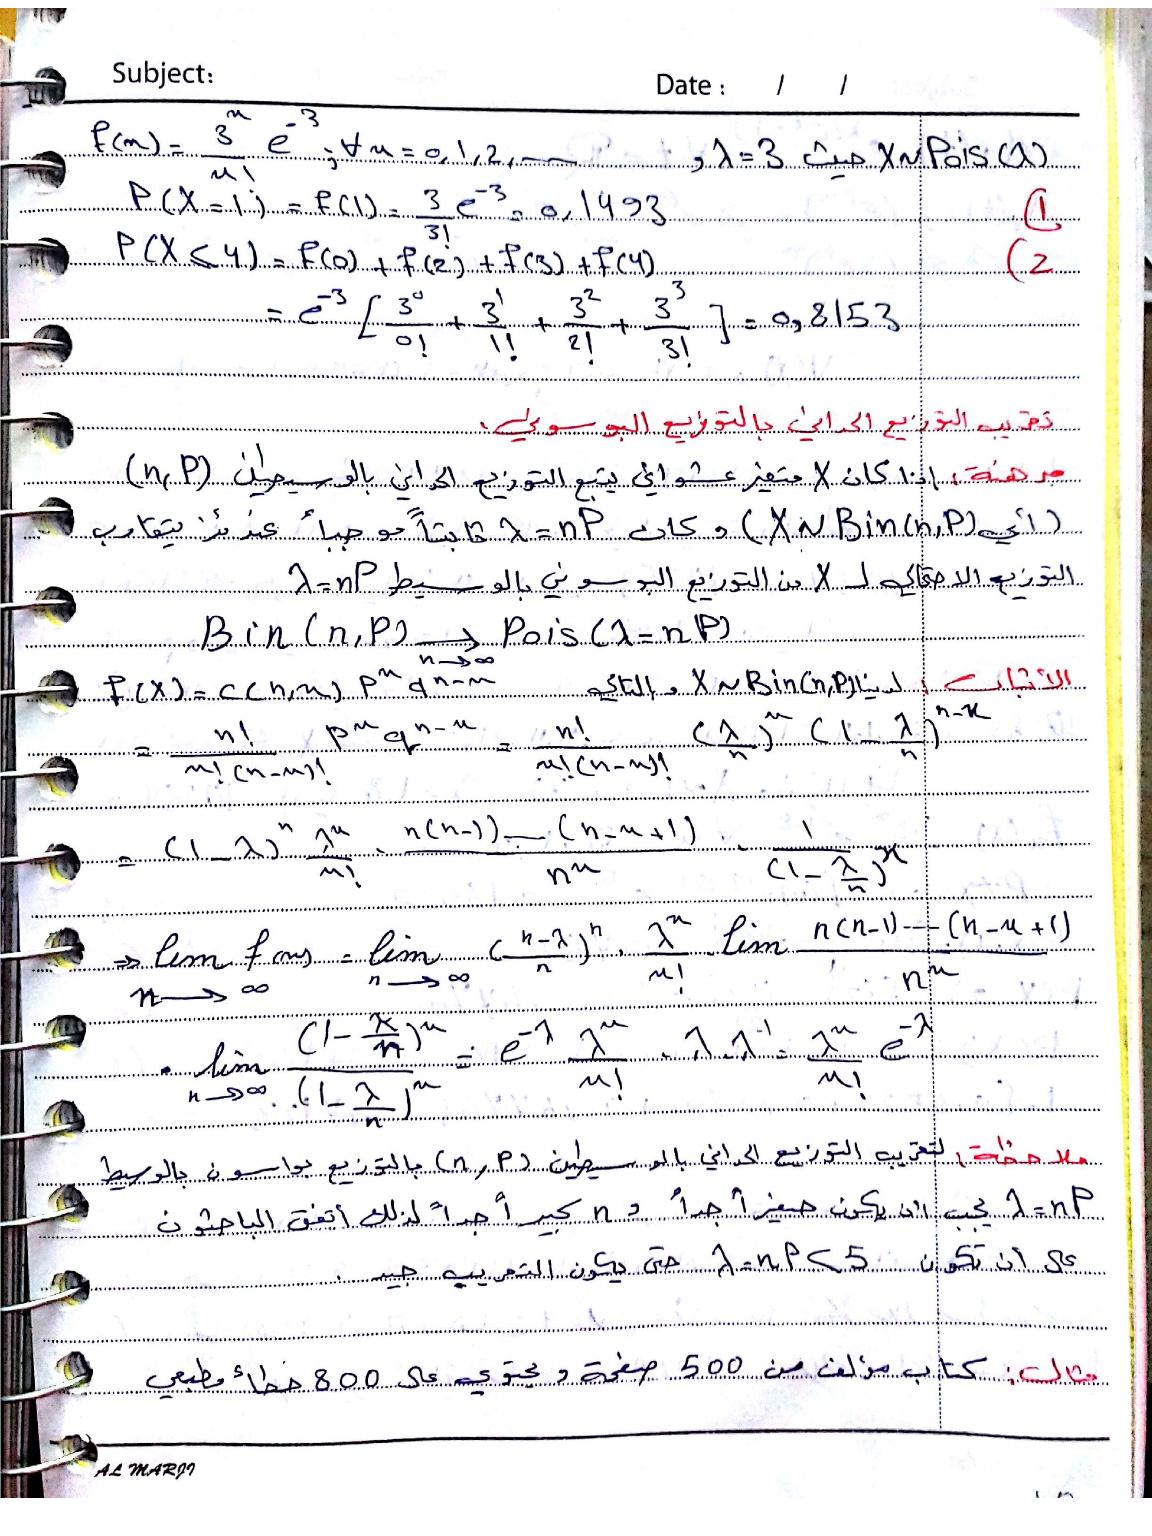 Subject:
Date : / /
X~Pois(λ) حيث λ=3 و f(x) = 3^x/x! e^-3 ; ∀x = 0,1,2,...
1) P(X=1) = f(1) = 3/3! e^-3 = 0,1493
2) P(X<4) = f(0) + f(2) + f(3) + f(4)
= e^-3 [ 3^0/0! + 3^1/1! + 3^2/2! + 3^3/3! ] = 0,8153
تقريب التوزيع الحداني بالتوزيع البوسوني.
مبرهنة: إذا كان X متغير عشوائي يتبع التوزيع الحداني بالوسيطين (n,P)
(أي X~Bin(n,P)) و كان λ=nP ثابتاً موجباً عندئذ يتقارب
التوزيع الاحتمالي لـ X من التوزيع البوسوني بالوسيط λ=nP
Bin(n,P) → Pois(λ=nP)
n→∞
الاثبات: لدينا X~Bin(n,P) وبالتالي f(X) = c(n,x) P^x q^n-x
= n!/x!(n-x)! P^x q^n-x = n!/x!(n-x)! (λ/n)^x (1-λ/n)^n-x
= (1-λ)^n λ^x/x! . n(n-1)---(n-x+1)/n^x . 1/(1-λ/n)^x
⇒ lim n→∞ f(x) = lim n→∞ (n-λ/n)^n . λ^x/x! . lim n(n-1)---(n-x+1)/n^x
. lim n→∞ (1-λ/n)^x/(1-λ/n)^x = e^-λ λ^x/x! . λ.λ^-1 = λ^x/x! e^-λ
ملاحظة: لتقريب التوزيع الحداني بالوسيطين (n,P) بالتوزيع بواسون بالوسيط
λ=nP يجب ان يكون صغيراً جداً و n كبيراً جداً لذلك أتفق الباحثون
على ان تكون λ=nP<5 حتى يكون التقريب جيد.
مثال: كتاب مؤلف من 500 صفحة و يحتوي على 800 خطأ مطبعي
AL MARJI